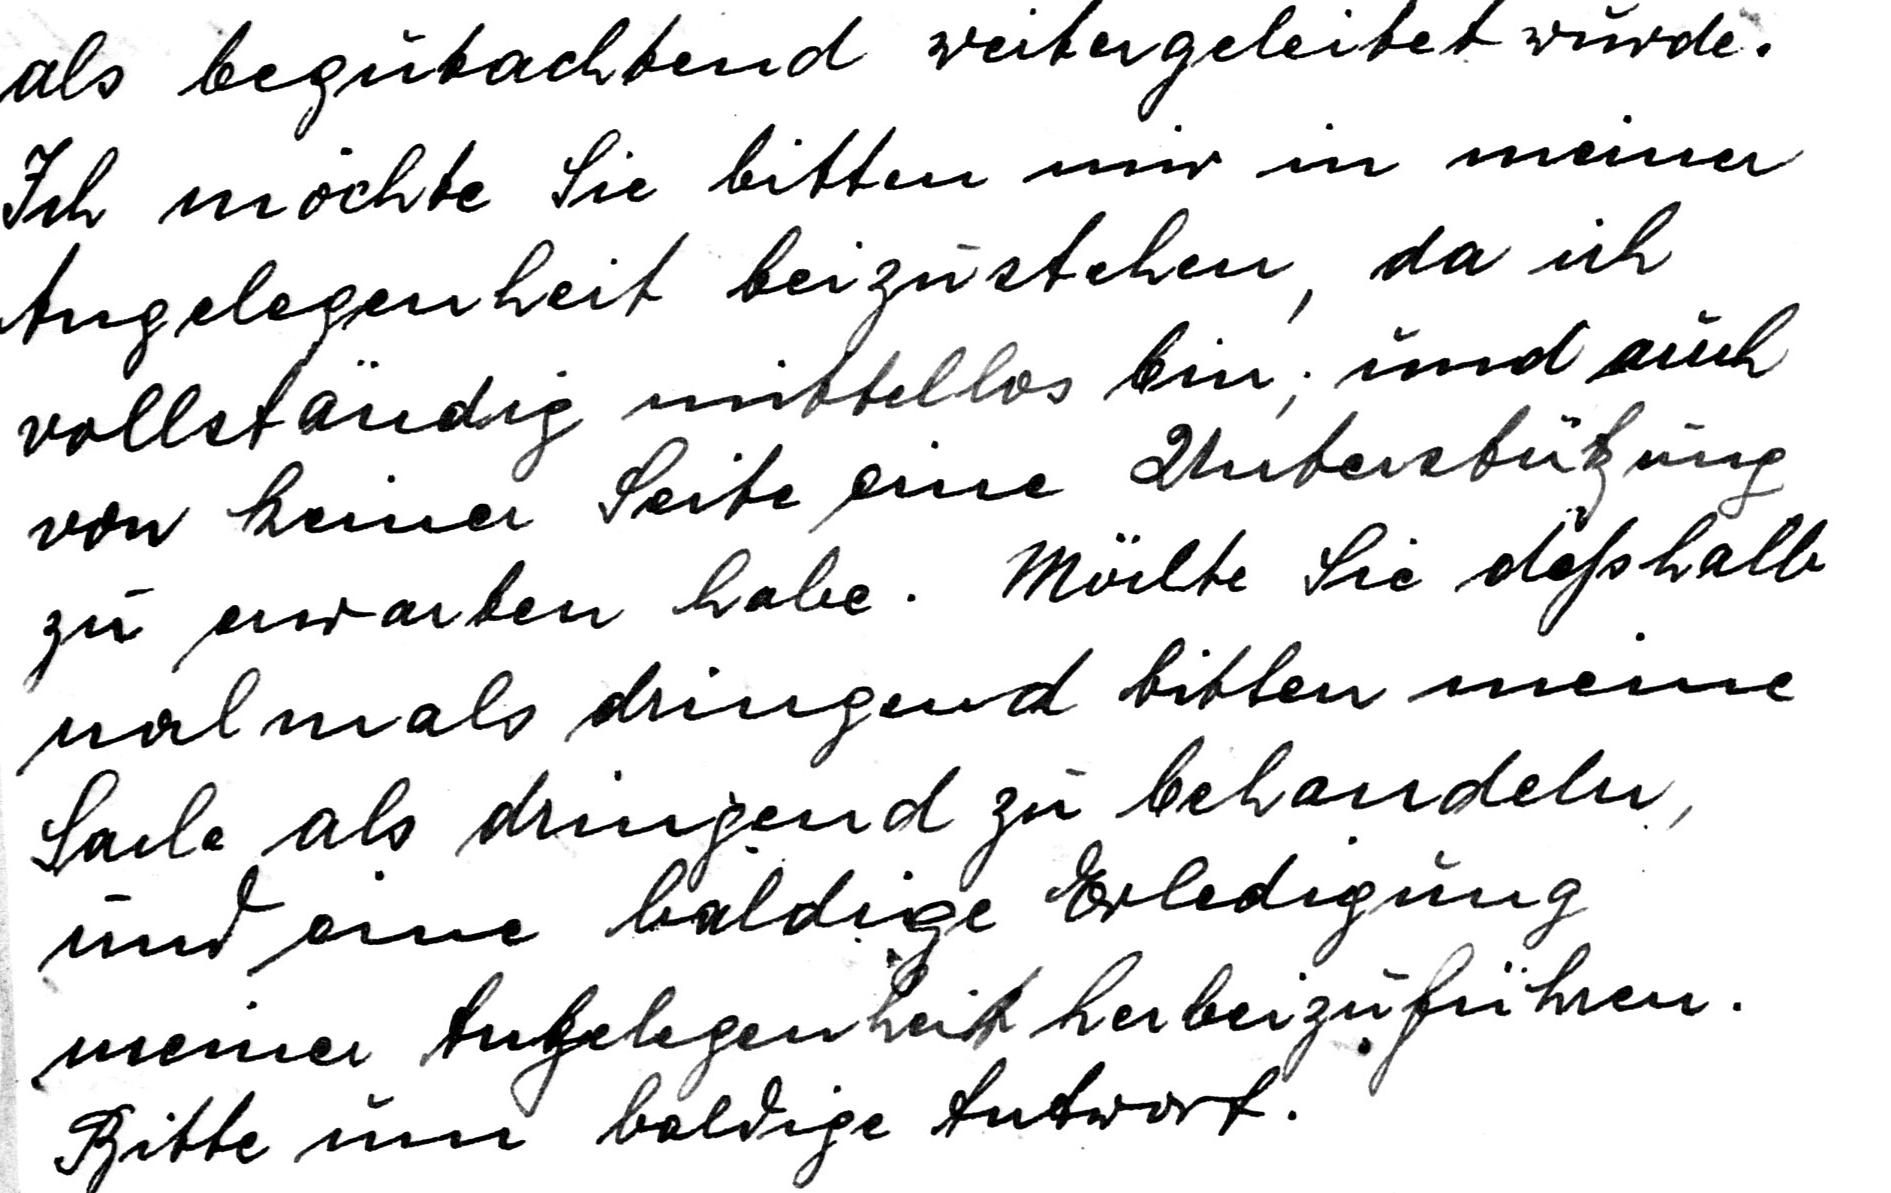 als begutachtend weitergeleitet wurde.
Ich möchte Sie bitten mir in meiner
Angelegenheit beizustehen, da ich
vollständig mittellos bin, und auch
von keiner Seite eine Unterstützung
zu erwarten habe. Möchte Sie deßhalb
nochmals dringend bitten meine
Sache als dringend zu behandeln,
und eine baldige Erledigung
meiner Angelegenheit herbeizuführen.
Bitte um baldige Antwort.